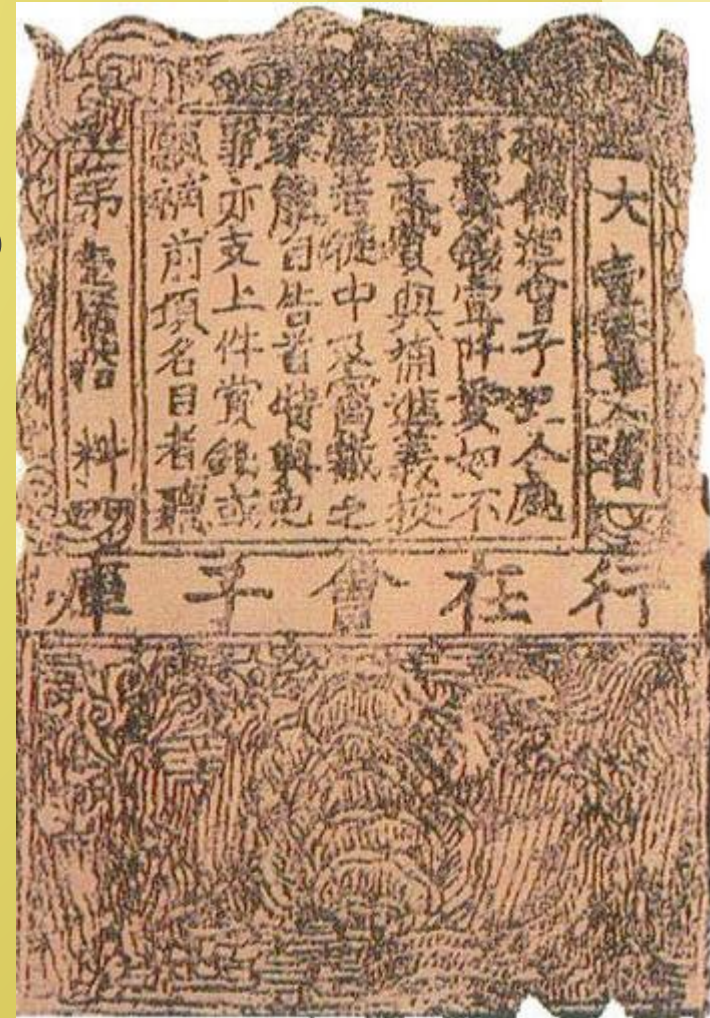 大壹貫文省
敕偽造會子犯人處
斬賞錢壹阡貫如不
願支賞與補進義校
尉若徒中及窩藏之
家能自告首特與免
罪亦支上件賞錢或
願補前項名目者聽
第壹伯拾料
行在會子庫